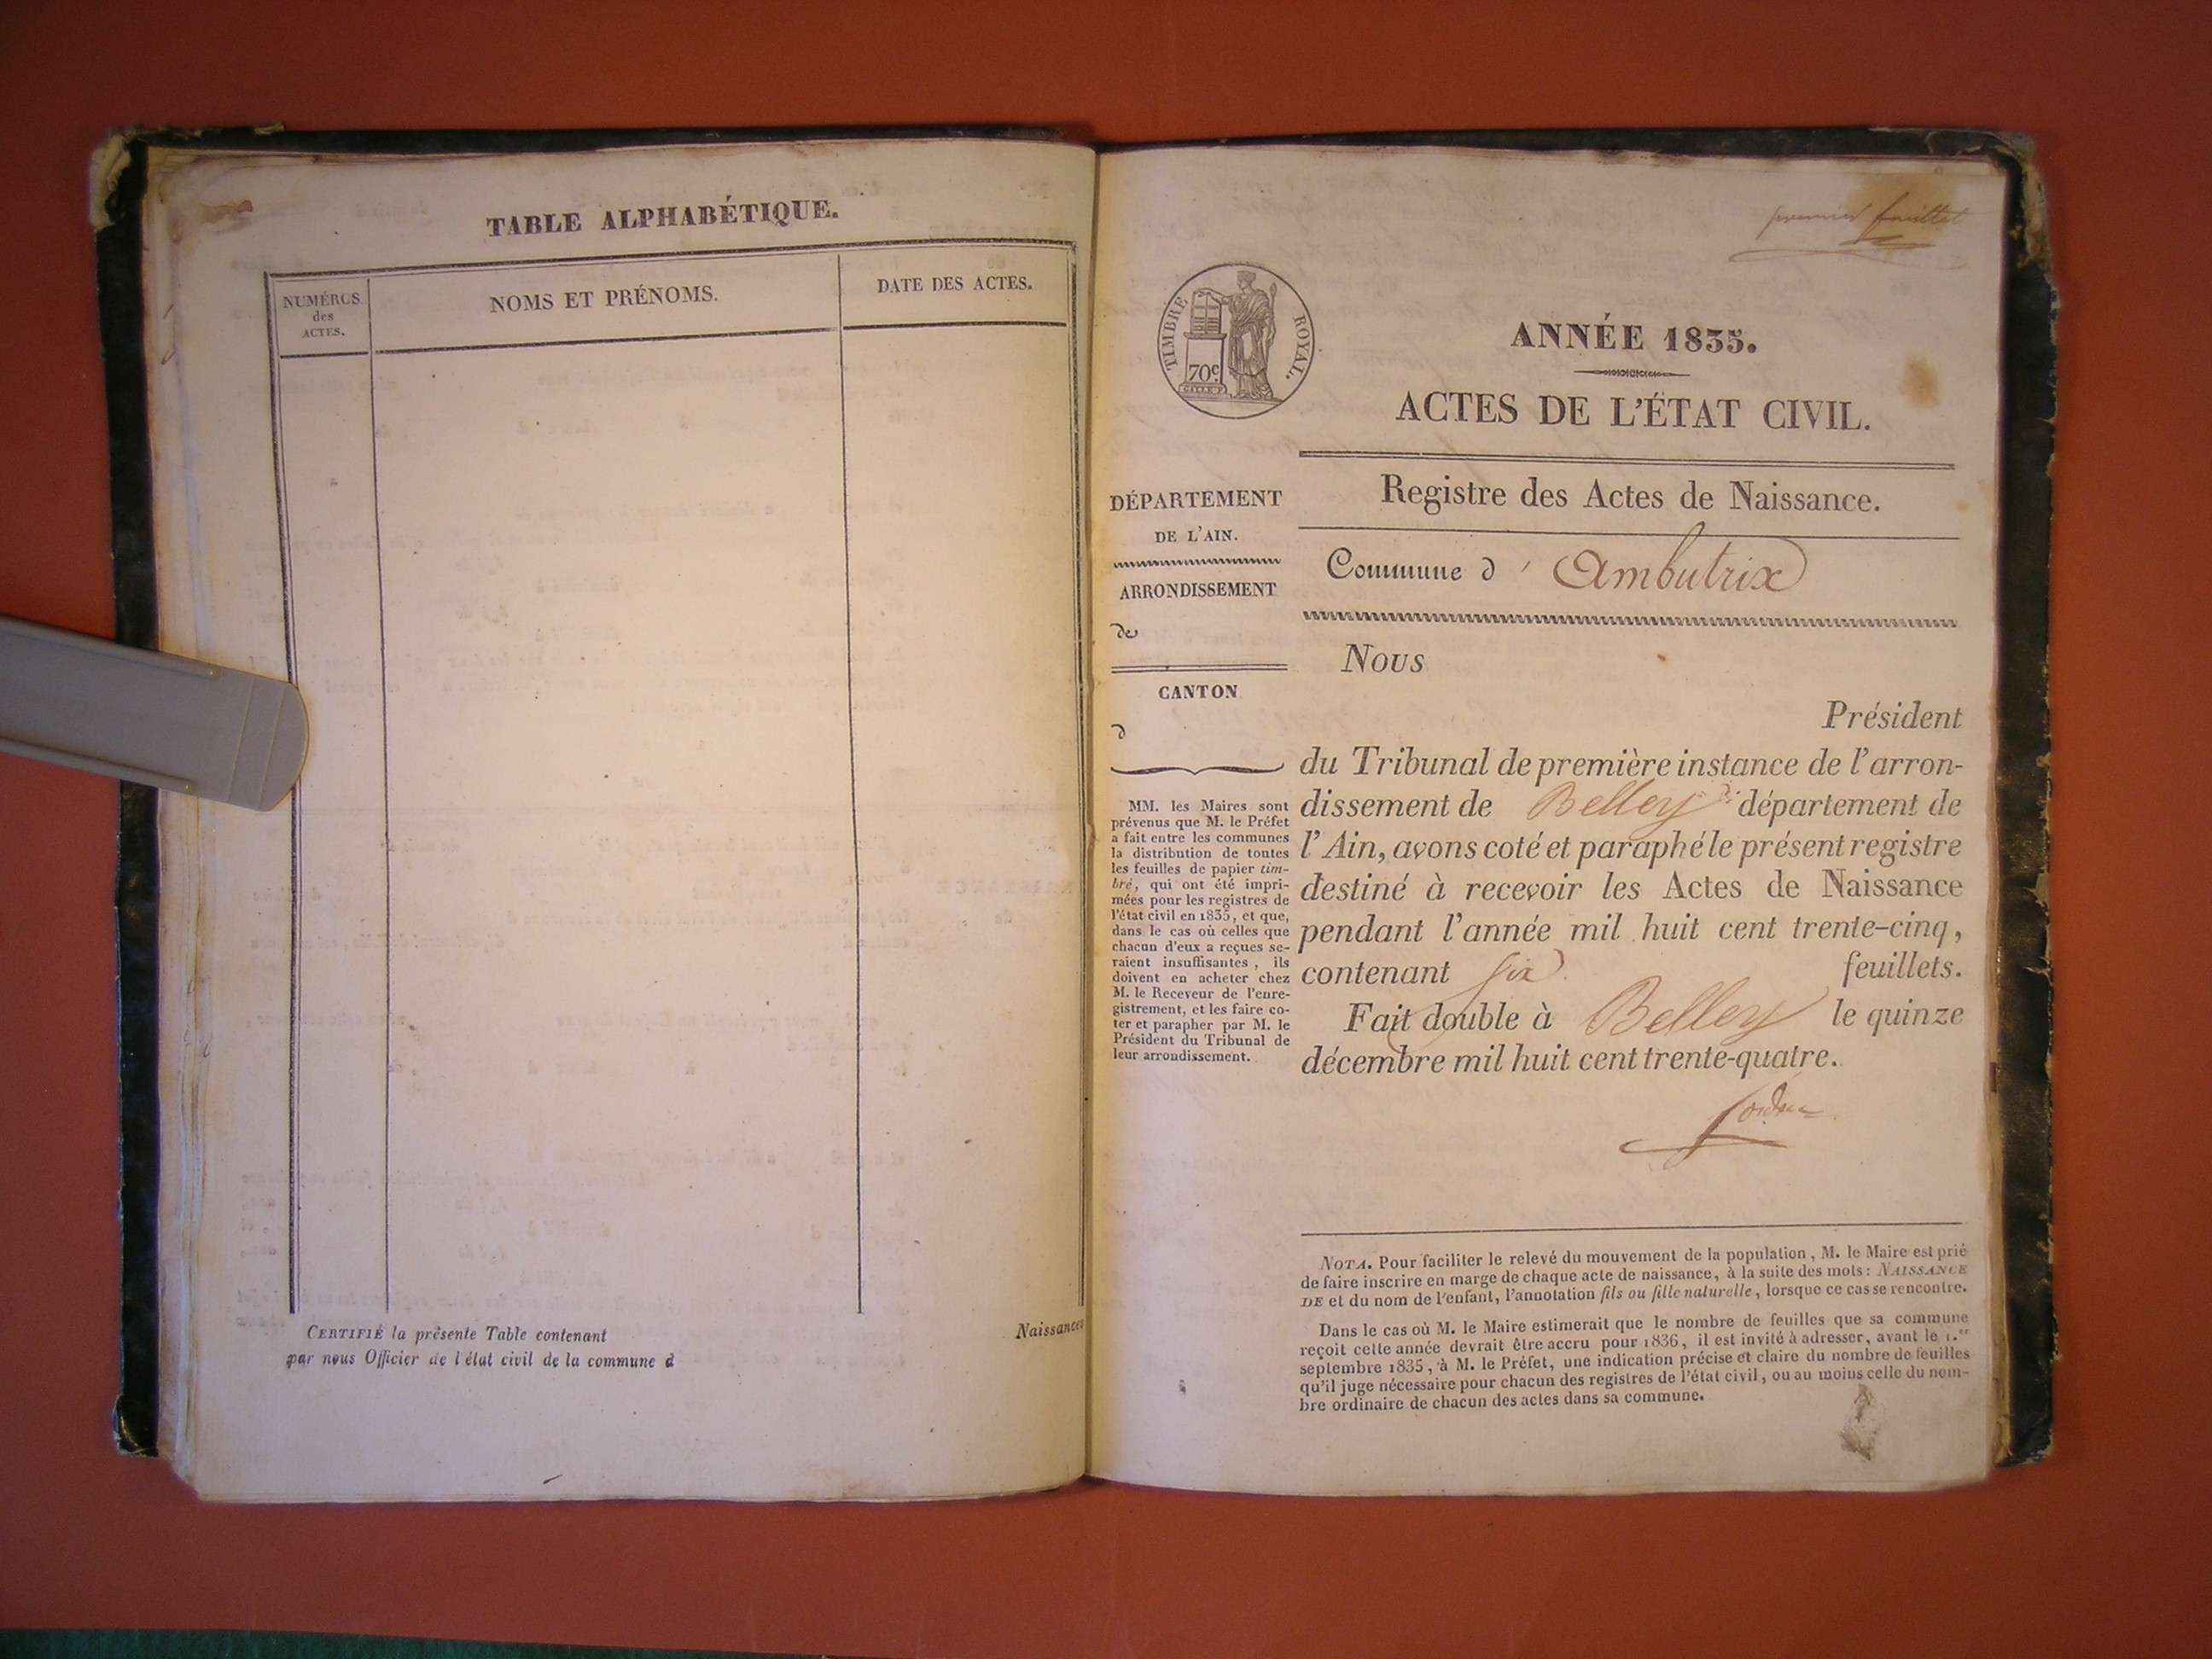 TABLE ALPHABÉTIQUE.
NUMÉROS
des
ACTES.
NOMS ET PRÉNOMS.
DATE DES ACTES.
CERTIFIÉ la présente Table contenant
par nous Officier de l'état civil de la commune d
Naissances
premier feuillet
TIMBRE ROYAL.
70c.
ANNÉE 1835.
ACTES DE L'ÉTAT CIVIL.
Registre des Actes de Naissance.
Commune d' Ambutrix
DÉPARTEMENT
DE L'AIN.
ARRONDISSEMENT
de
CANTON
d
MM. les Maires sont
prévenus que M. le Préfet
a fait entre les communes
la distribution de toutes
les feuilles de papier tim-
bré, qui ont été impri-
mées pour les registres de
l'état civil en 1835, et que,
dans le cas où celles que
chacun d'eux a reçues se-
raient insuffisantes, ils
doivent en acheter chez
M. le Receveur de l'enre-
gistrement, et les faire co-
ter et parapher par M. le
Président du Tribunal de
leur arrondissement.
Nous
Président
du Tribunal de première instance de l'arron-
dissement de Belley département de
l'Ain, avons coté et paraphé le présent registre
destiné à recevoir les Actes de Naissance
pendant l'année mil huit cent trente-cinq,
contenant six feuillets.
Fait double à Belley le quinze
décembre mil huit cent trente-quatre.
NOTA. Pour faciliter le relevé du mouvement de la population, M. le Maire est prié
de faire inscrire en marge de chaque acte de naissance, à la suite des mots: NAISSANCE
DE et du nom de l'enfant, l'annotation fils ou fille naturelle, lorsque ce cas se rencontre.
Dans le cas où M. le Maire estimerait que le nombre de feuilles que sa commune
reçoit cette année devrait être accru pour 1836, il est invité à adresser, avant le 1.er
septembre 1835, à M. le Préfet, une indication précise et claire du nombre de feuilles
qu'il juge nécessaire pour chacun des registres de l'état civil, ou au moins celle du nom-
bre ordinaire de chacun des actes dans sa commune.